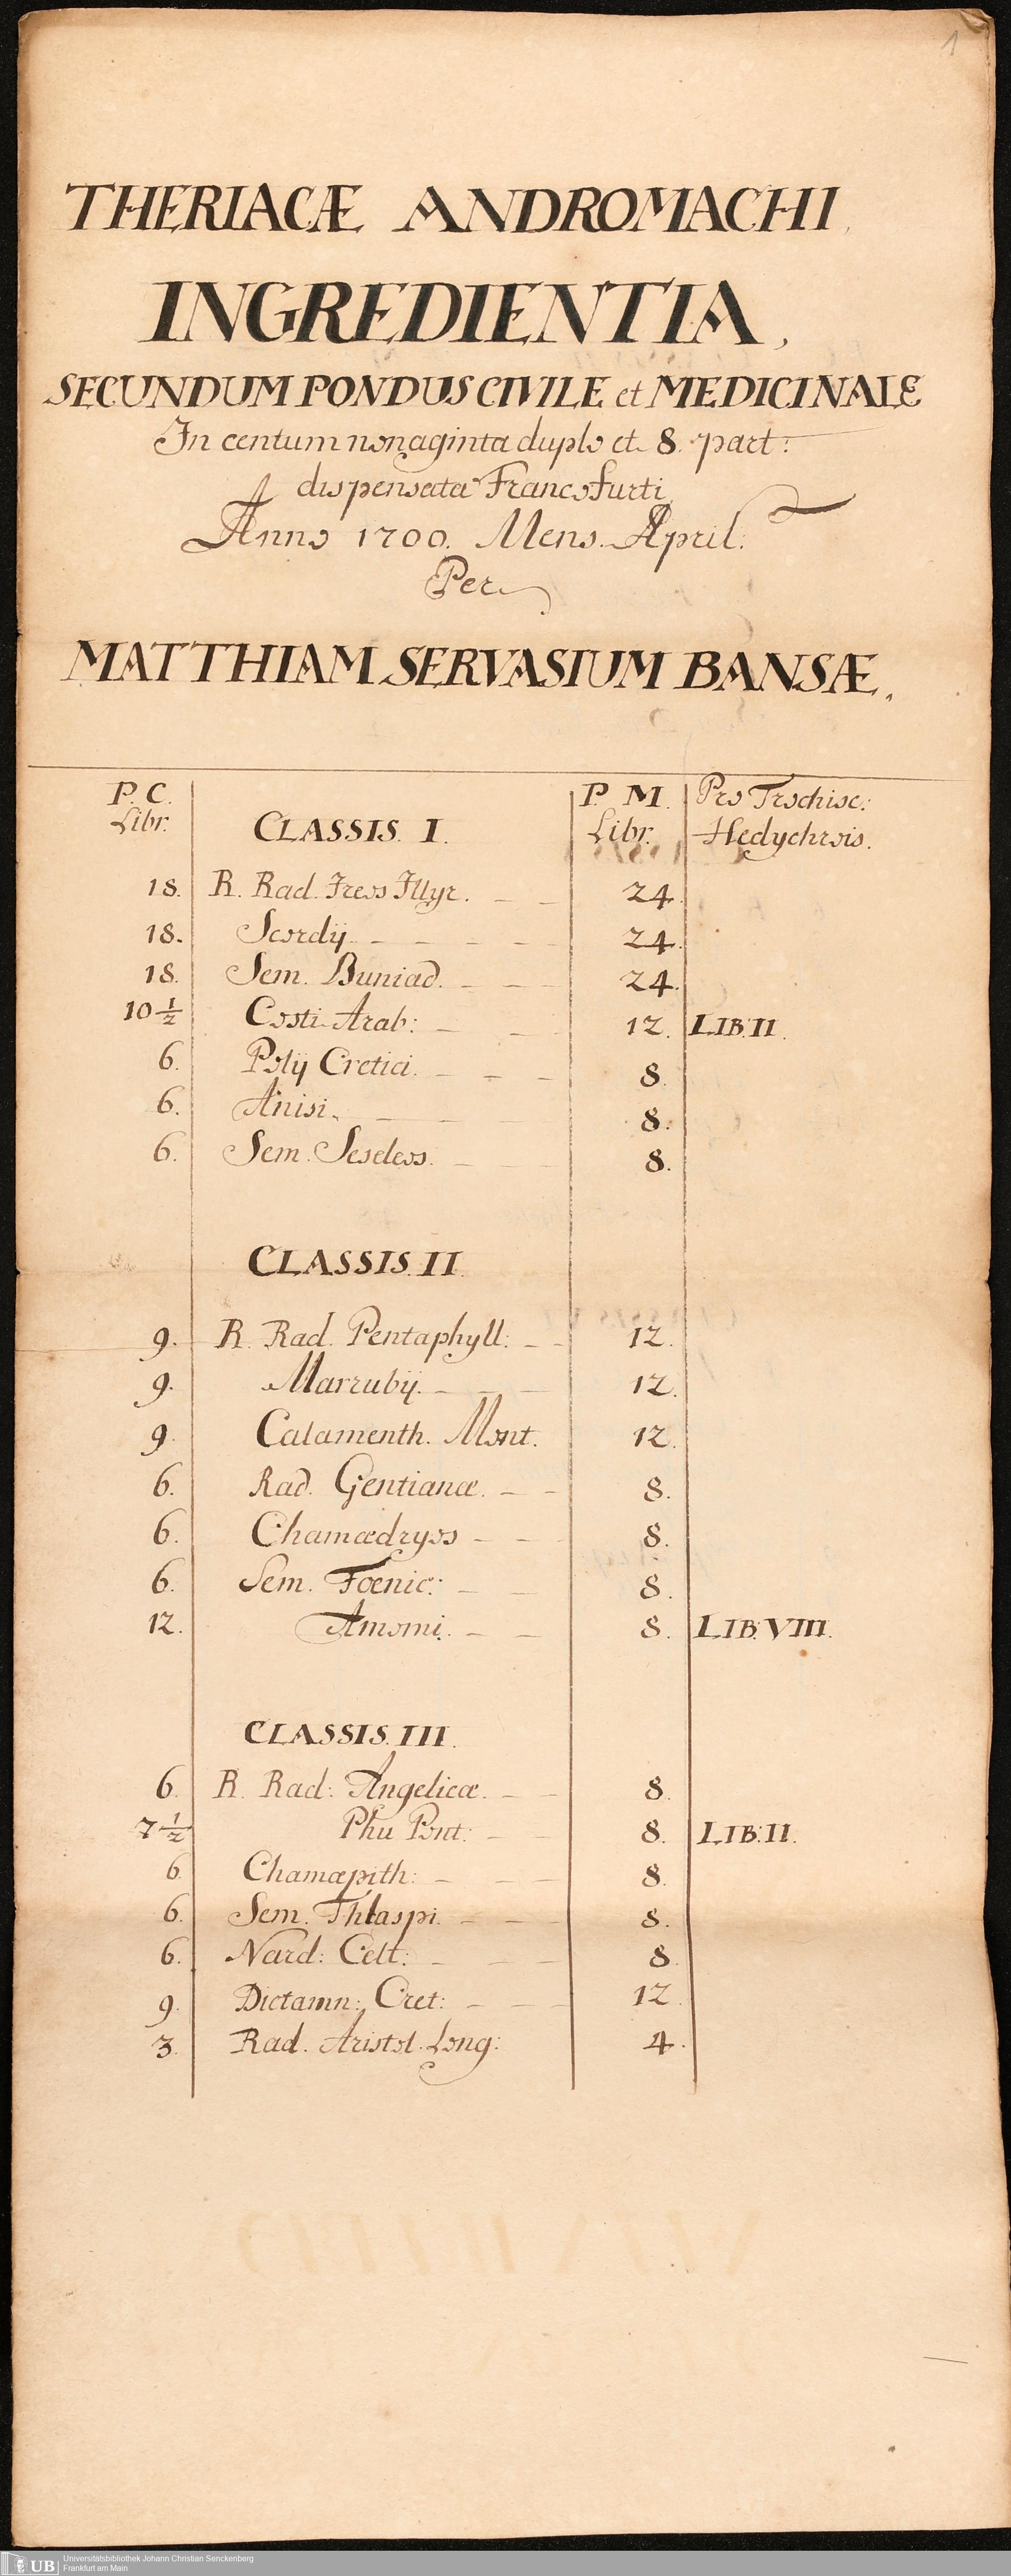 1
THERIACÆ ANDROMACHI,
INGREDIENTIA,
SECUNDUM PONDUS CIVILE et MEDICINALE
In centum nonaginta duplo et 8. part:
dispensata Francofurti
Anno 1700. Mens. April.
Per
MATTHIAM SERVASIUM BANSÆ.
P. C. Libr. CLASSIS. I. P. M. Libr. Pro Trochisc: Hedychrois.
18. R. Rad. Ireos Illyr. 24.
18. Scordij 24.
18. Sem. Buniad. 24.
10 1/2 Costi Arab: 12. LIB. II.
6. Polij Cretici. 8.
6. Anisi. 8.
6. Sem. Seseleos. 8.
CLASSIS. II.
9. R. Rad. Pentaphyll: 12.
9. Marrubij. 12.
9. Calamenth. Mont. 12.
6. Rad. Gentianæ. 8.
6. Chamædryos 8.
6. Sem. Fœnic: 8.
12. Amomi. 8. LIB. VIII.
CLASSIS. III.
6. R. Rad: Angelicæ. 8.
7 1/2 Phu Pont: 8. LIB: II.
6. Chamæpith: 8.
6. Sem. Thlaspi. 8.
6. Nard: Celt: 8.
9. Dictamn: Cret: 12.
3. Rad. Aristol. Long: 4.
UB Universitätsbibliothek Johann Christian Senckenberg
Frankfurt am Main